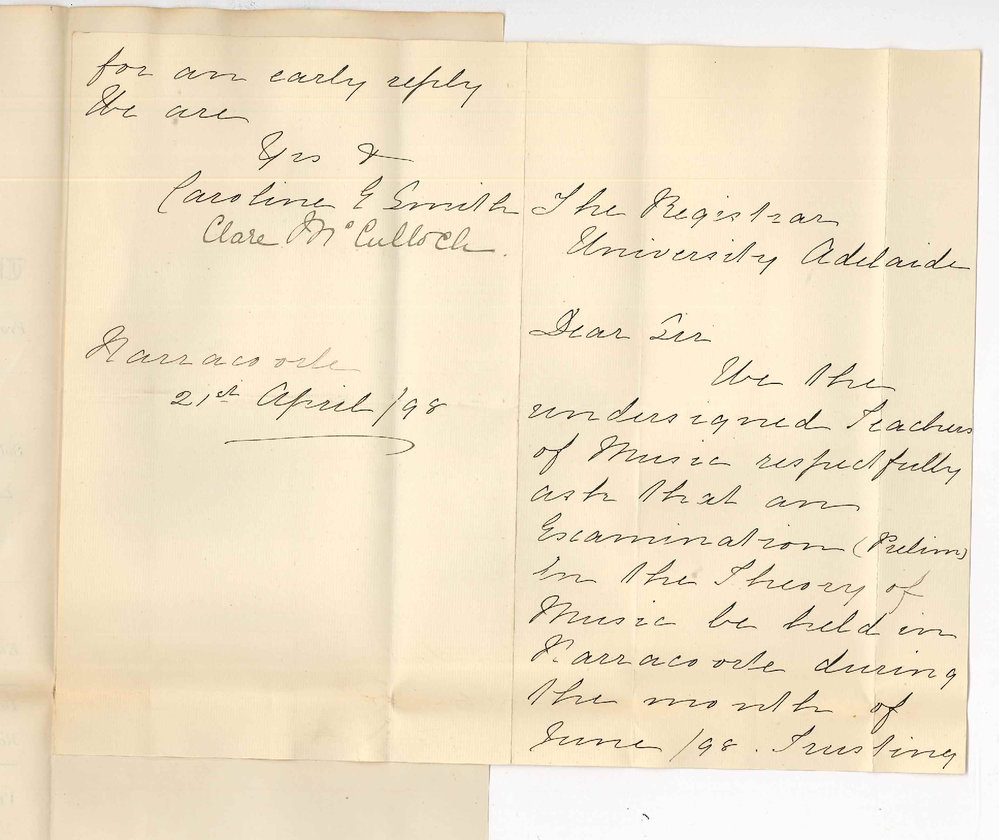 The Registrar
University Adelaide
Dear Sir
We the
undersigned Teachers
of Music respectfully
ask that an
Examination (Prelim)
in the Theory of
Music be held in
Narracoorte during
the month of
June /98. Trusting
for an early reply
We are
Yrs &
Caroline E Smith
Clare McCulloch.
Narracoorte
21st April /98